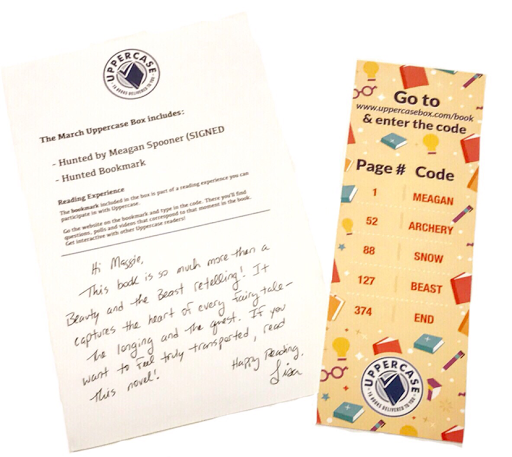 UPPERCASE
YA BOOKS DELIVERED TO YOU
The March Uppercase Box includes:
- Hunted by Meagan Spooner (SIGNED
- Hunted Bookmark
Reading Experience
The bookmark included in the box is part of a reading experience you can
participate in with Uppercase.
Go the website on the bookmark and type in the code. There you'll find
questions, polls and videos that correspond to that moment in the book.
Get interactive with other Uppercase readers!
Hi Maggie,
This book is so much more than a
Beauty and the Beast retelling! It
captures the heart of every fairy tale-
the longing and the quest. If you
want to feel truly transported, read
this novel!
Happy Reading,
Lisa
Go to
www.uppercasebox.com/book
& enter the code
Page # Code
1 MEAGAN
52 ARCHERY
88 SNOW
127 BEAST
374 END
UPPERCASE
YA BOOKS DELIVERED TO YOU